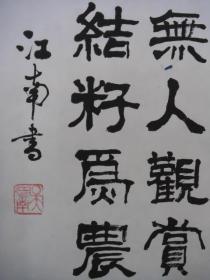 無人觀賞
結籽爲農
江南書